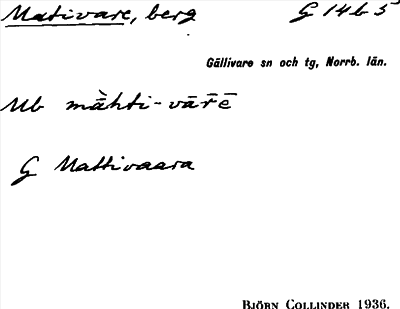 Mativare, berg G 14b5
Gällivare sn och tg, Norrb. län.
Ub mā̀hti-vār̄ē
G Mattivaara
BJÖRN COLLINDER 1936.